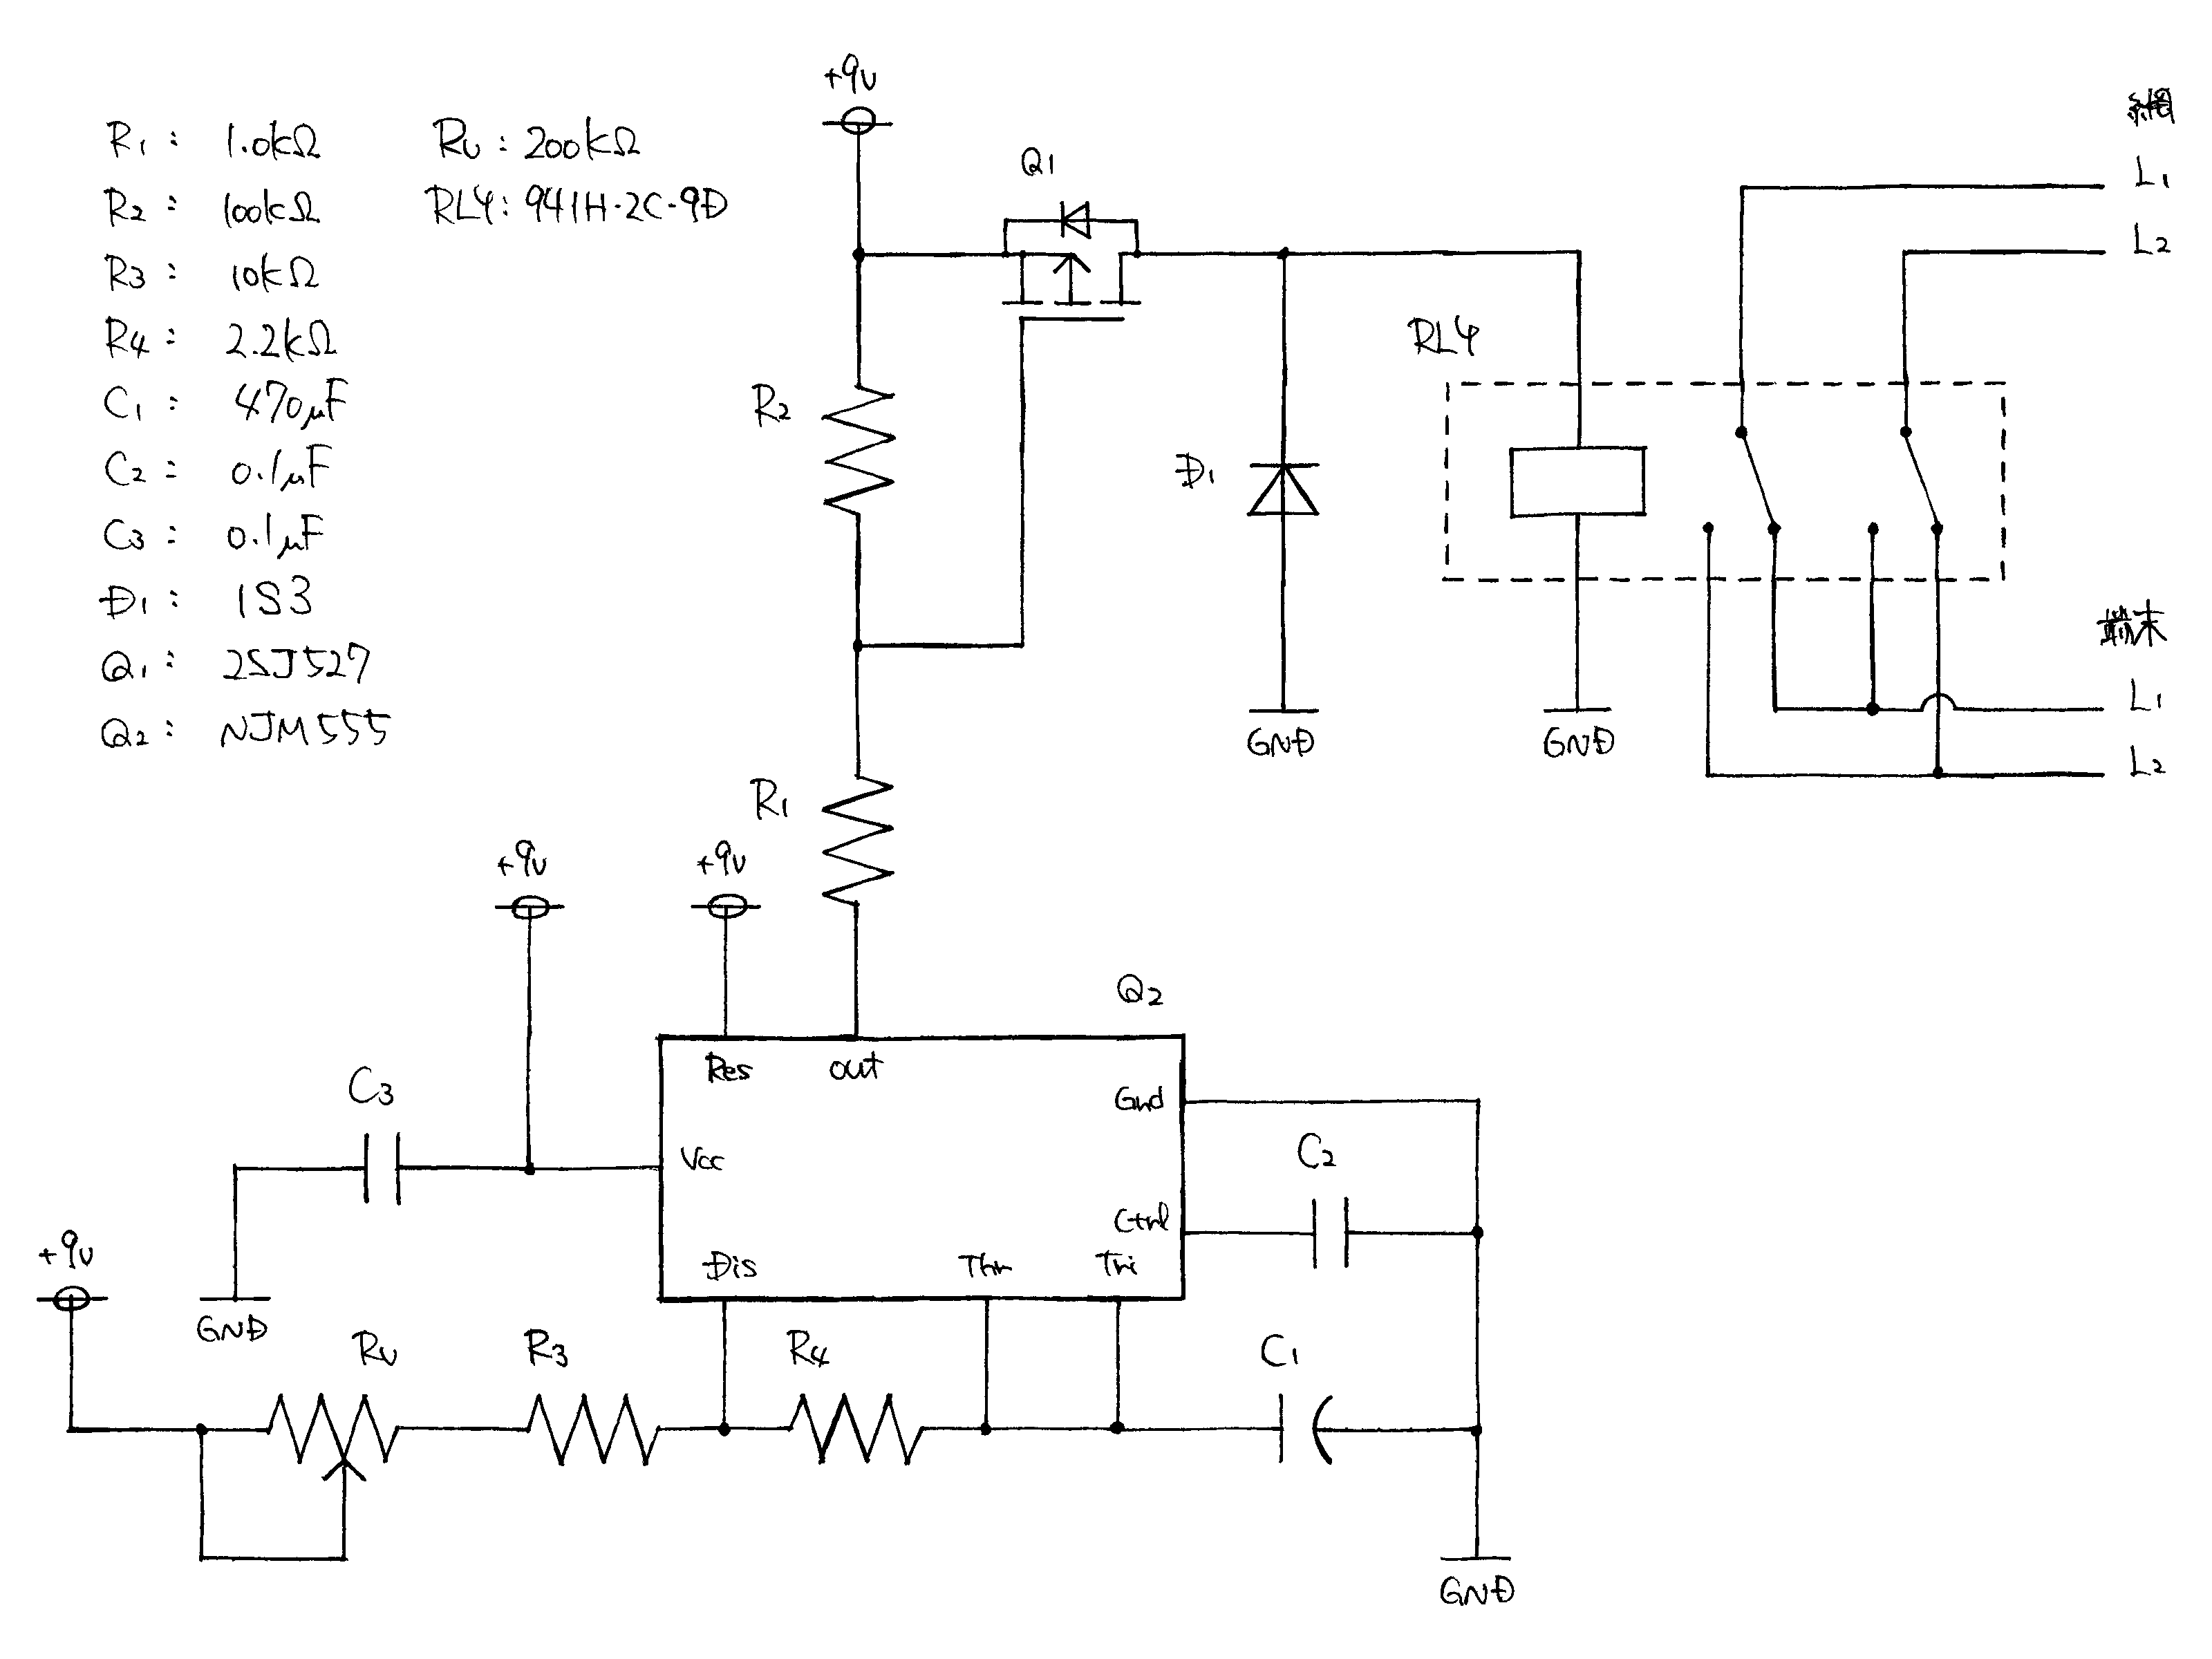 R1 : 1.0kΩ
R2 : 100kΩ
R3 : 10kΩ
R4 : 2.2kΩ
C1 : 470μF
C2 : 0.1μF
C3 : 0.1μF
D1 : 1S3
Q1 : 2SJ527
Q2 : NJM555
Rv : 200kΩ
RLY : 941H-2C-9D
+9v
Q1
網
L1
L2
RLY
R2
D1
端末
L1
L2
GND
GND
R1
+9v
+9v
Q2
Res
out
Gnd
C3
Vcc
C2
Ctrl
+9v
Dis
Thr
Tri
GND
Rv
R3
R4
C1
GND